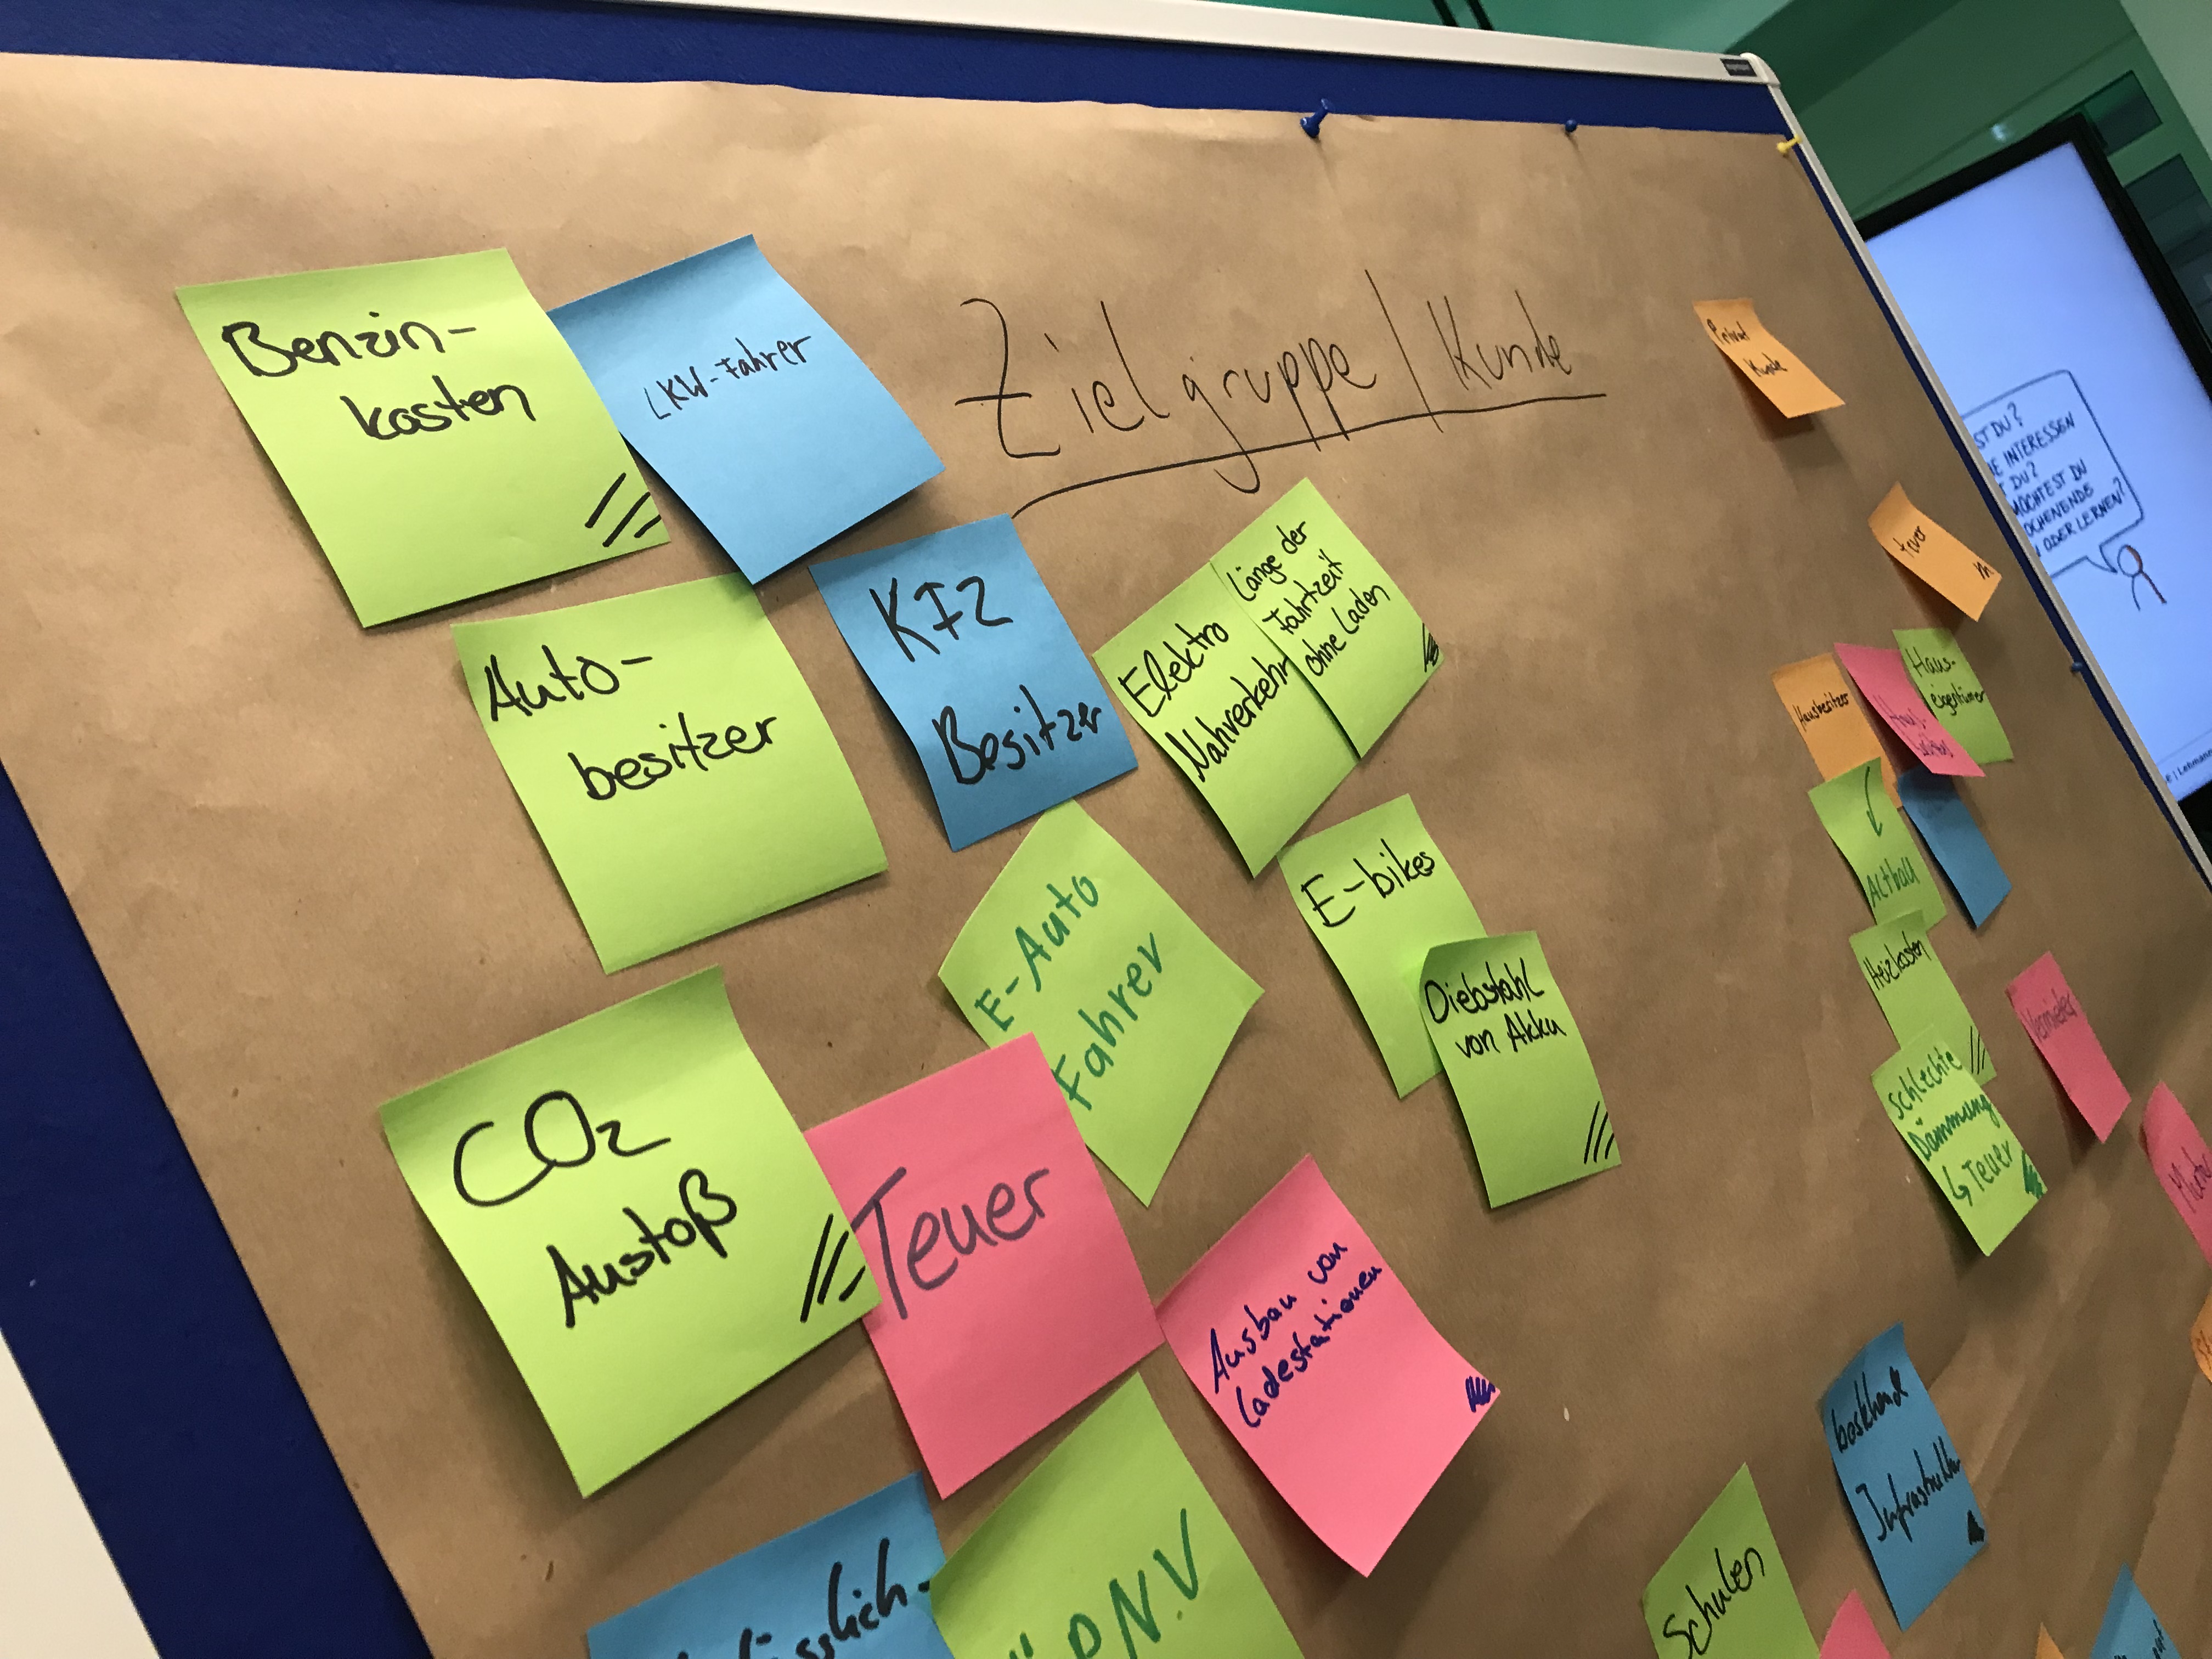 Zielgruppe / Kunde
Benzin-
kosten
LKW-Fahrer
Auto-
besitzer
KFZ
Besitzer
Elektro
Nahverkehr
Länge der
Fahrtzeit
ohne Laden
E-bikes
Diebstahl
von Akku
E-Auto
Fahrer
CO2
Austoß
Teuer
Ausbau von
Ladestationen
ÖPNV
Privat
Kunde
Hausbesitzer
Haus-
eigentümer
Altbau
Heizkosten
Schlechte
Dämmung
↳ Teuer
Vermieter
Infrastruktur
Schulen
ST DU?
INTERESSEN
DU?
MÖCHTEST DU
OCHENENDE
ODER LERNEN?
| Lehmann